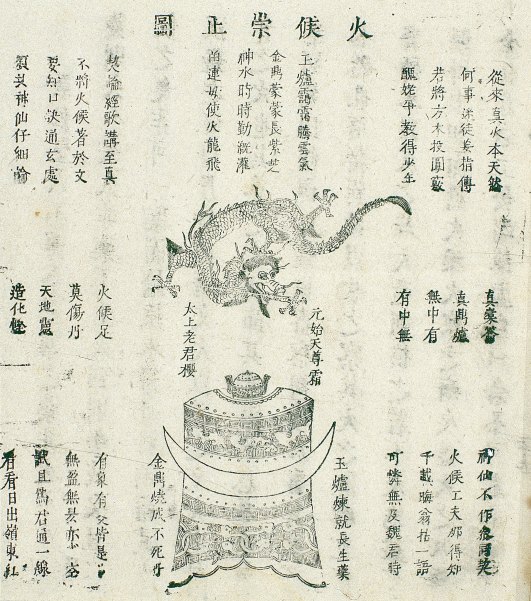 火候崇正圖
從來真火本天然
何事迷徒妄指傳
若將方木投圓竅
醜姹爭教得少年
玉爐靄靄騰雲氣
金鼎蒙蒙長紫芝
神水時時勤溉灌
留連毋使火龍飛
契論經歌講至真
不將火候著於文
要知口訣通玄處
須共神仙仔細論
真橐籥
真鼎爐
無中有
有中無
元始天尊霜
太上老君櫻
火候足
莫傷丹
天地靈
造化慳
神仙不作參同契
火候工夫那得知
千載晦翁拈一語
可憐無及魏君時
玉爐煉就長生藥
金鼎燒成不死丹
有象有爻皆是
無盈無缺亦
試且為君通一線
看看日出嶺東紅